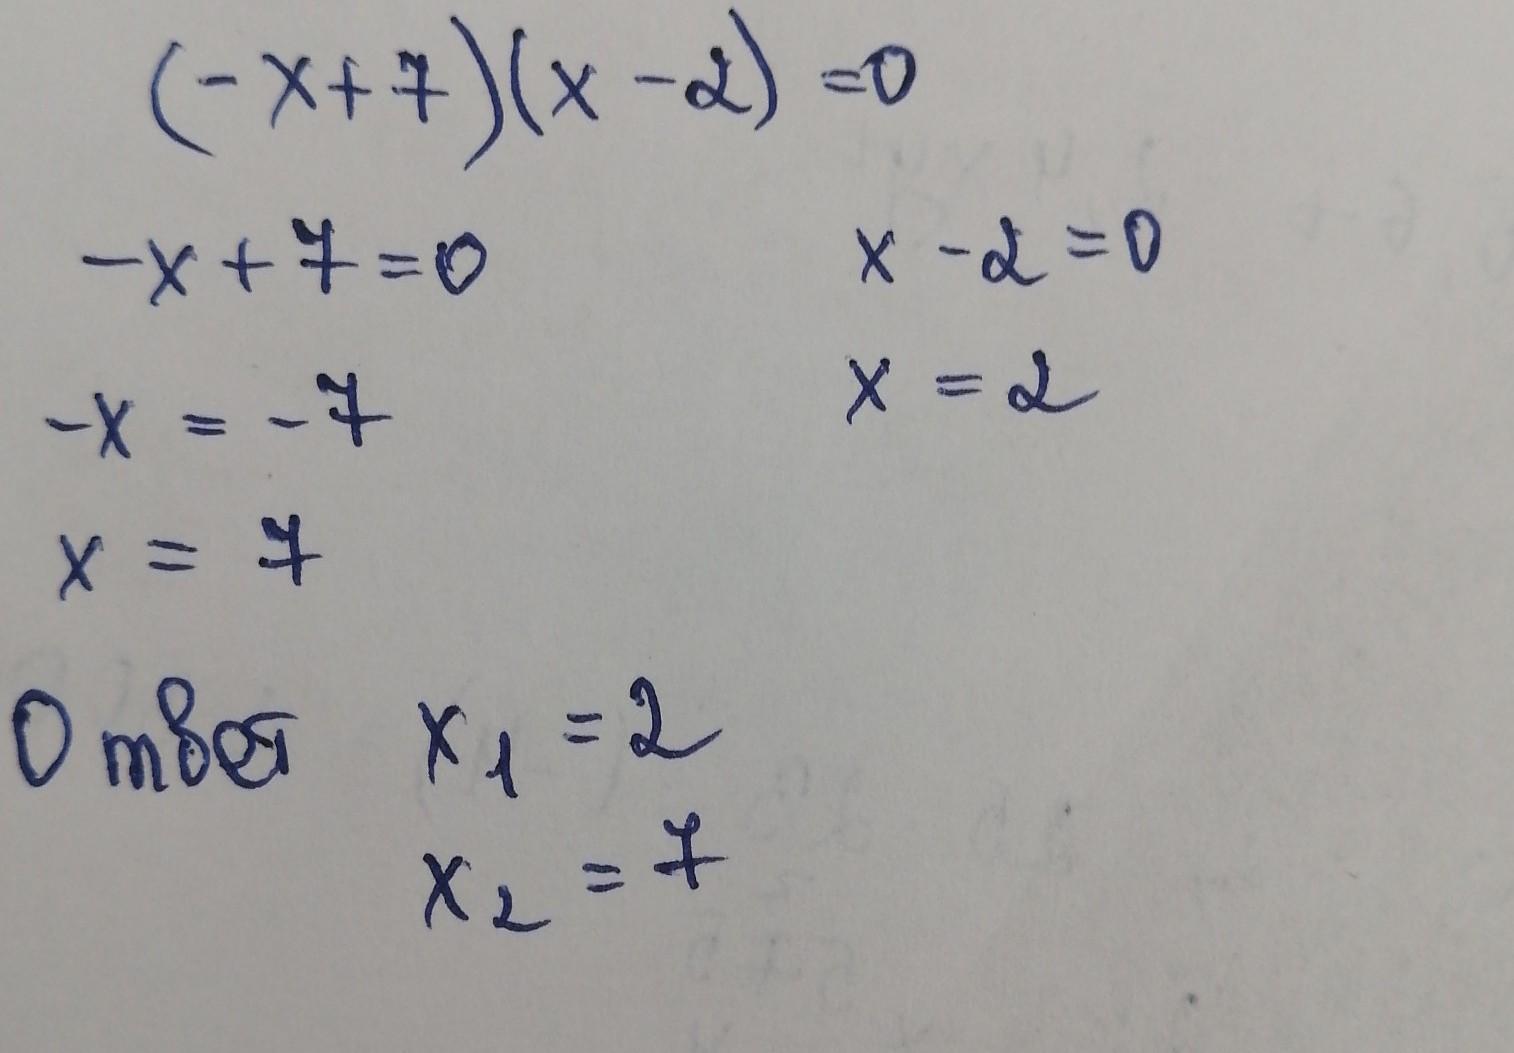 (-x+7)(x-2)=0
-x+7=0
-x = -7
x = 7
x-2=0
x = 2
Ответ x₁ = 2
x₂ = 7